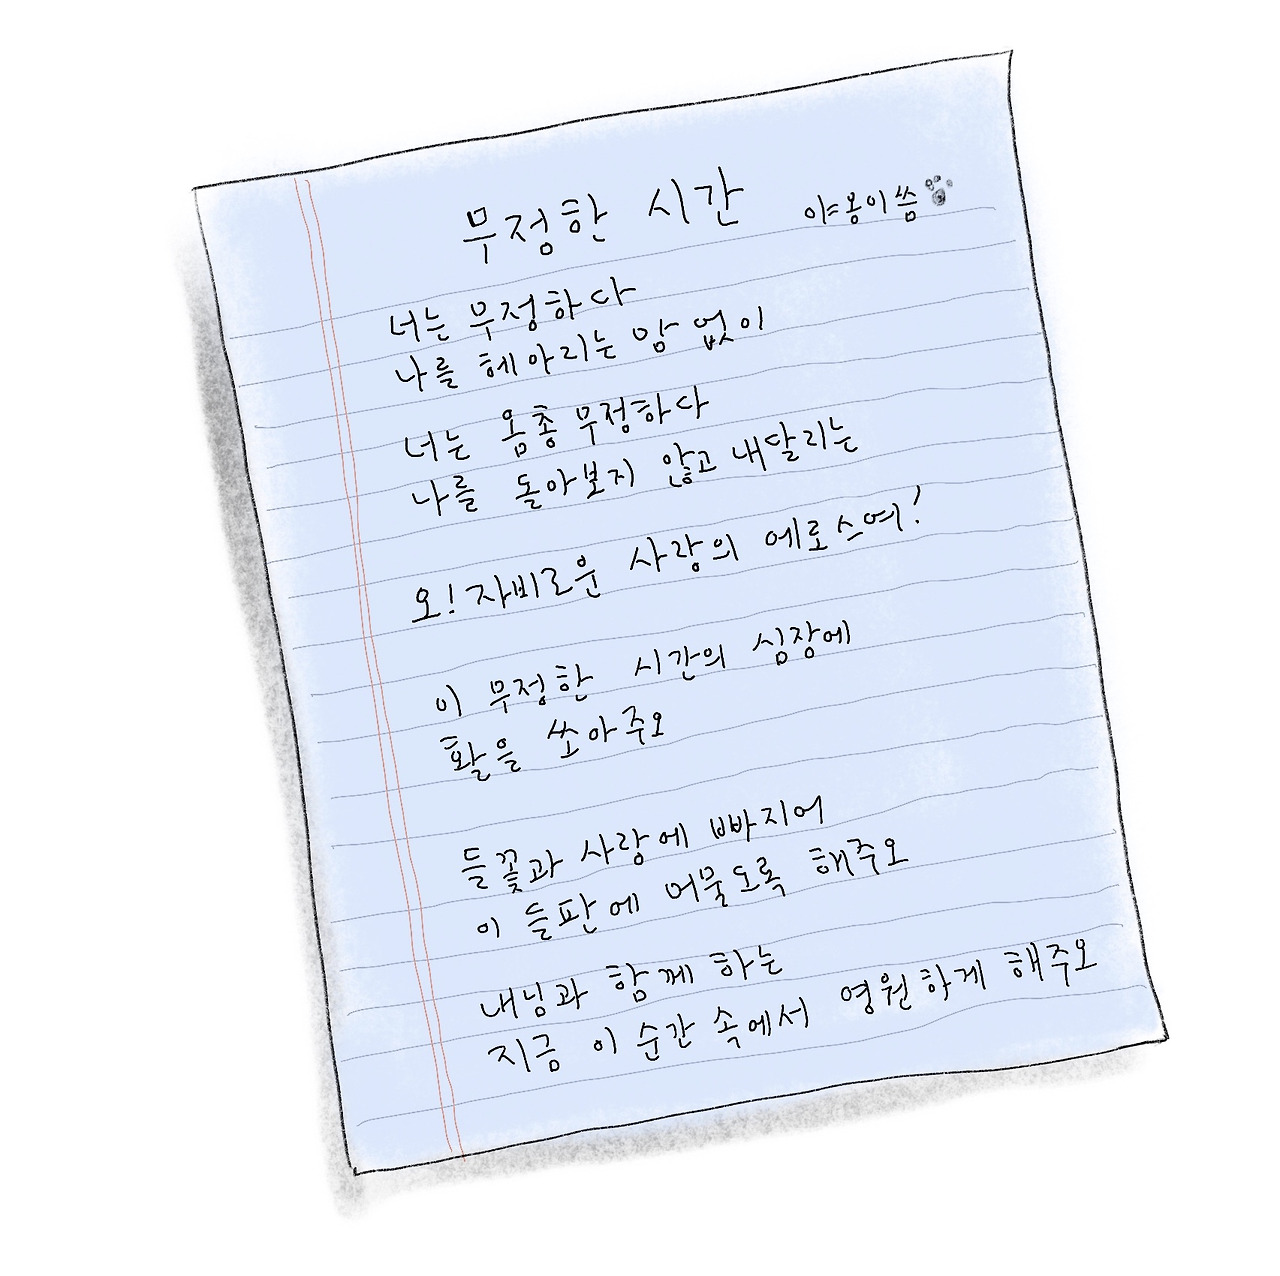 무정한 시간 야옹이 씀
너는 무정하다
나를 헤아리는 맘 없이
너는 옴총 무정하다
나를 돌아보지 않고 내달리는
오! 자비로운 사랑의 에로스여!
이 무정한 시간의 심장에
활을 쏘아주오
들꽃과 사랑에 빠지어
이 들판에 머물도록 해주오
내님과 함께 하는
지금 이 순간 속에서 영원하게 해주오